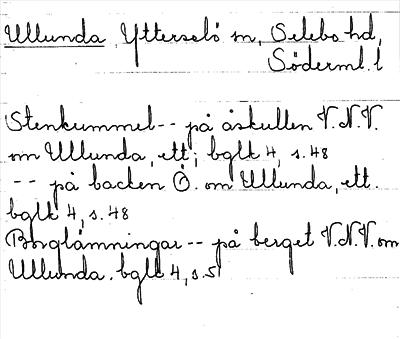 Ullunda Ytterselö sn, Selebo hd,
Söderml. l
Stenkummel -- på åskullen V.N.V.
om Ullunda, ett; bglt 4, s. 48
-- på backen Ö. om Ullunda, ett.
bglt 4, s. 48
Borglämningar -- på berget V.N.V. om
Ullunda. bglt 4, s. 51